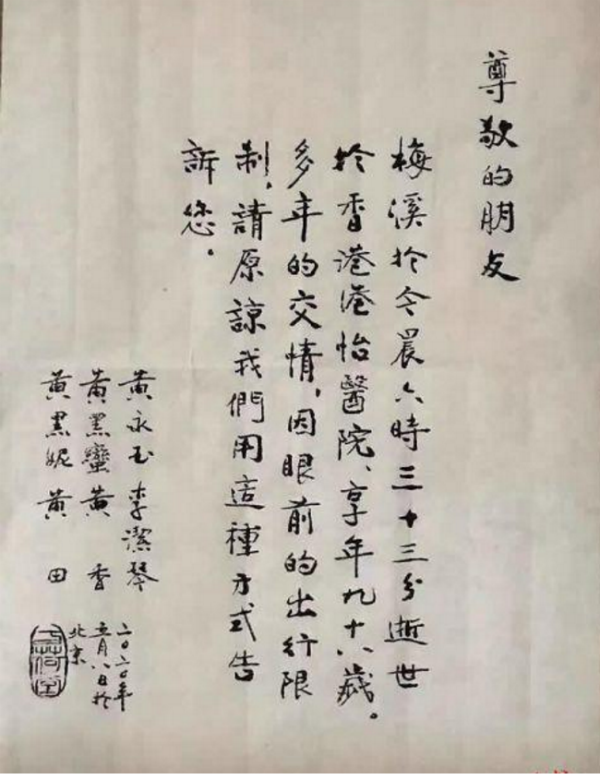 尊敬的朋友
梅溪於今晨六時三十三分逝世
於香港港怡醫院、享年九十八歲。
多年的交情,因眼前的出行限
制,請原諒我們用這種方式告
訴您。
黃永玉 李潔琴
黃黑蠻 黃香
黃黑妮 黃田
二〇二〇年
五月八日於
北京